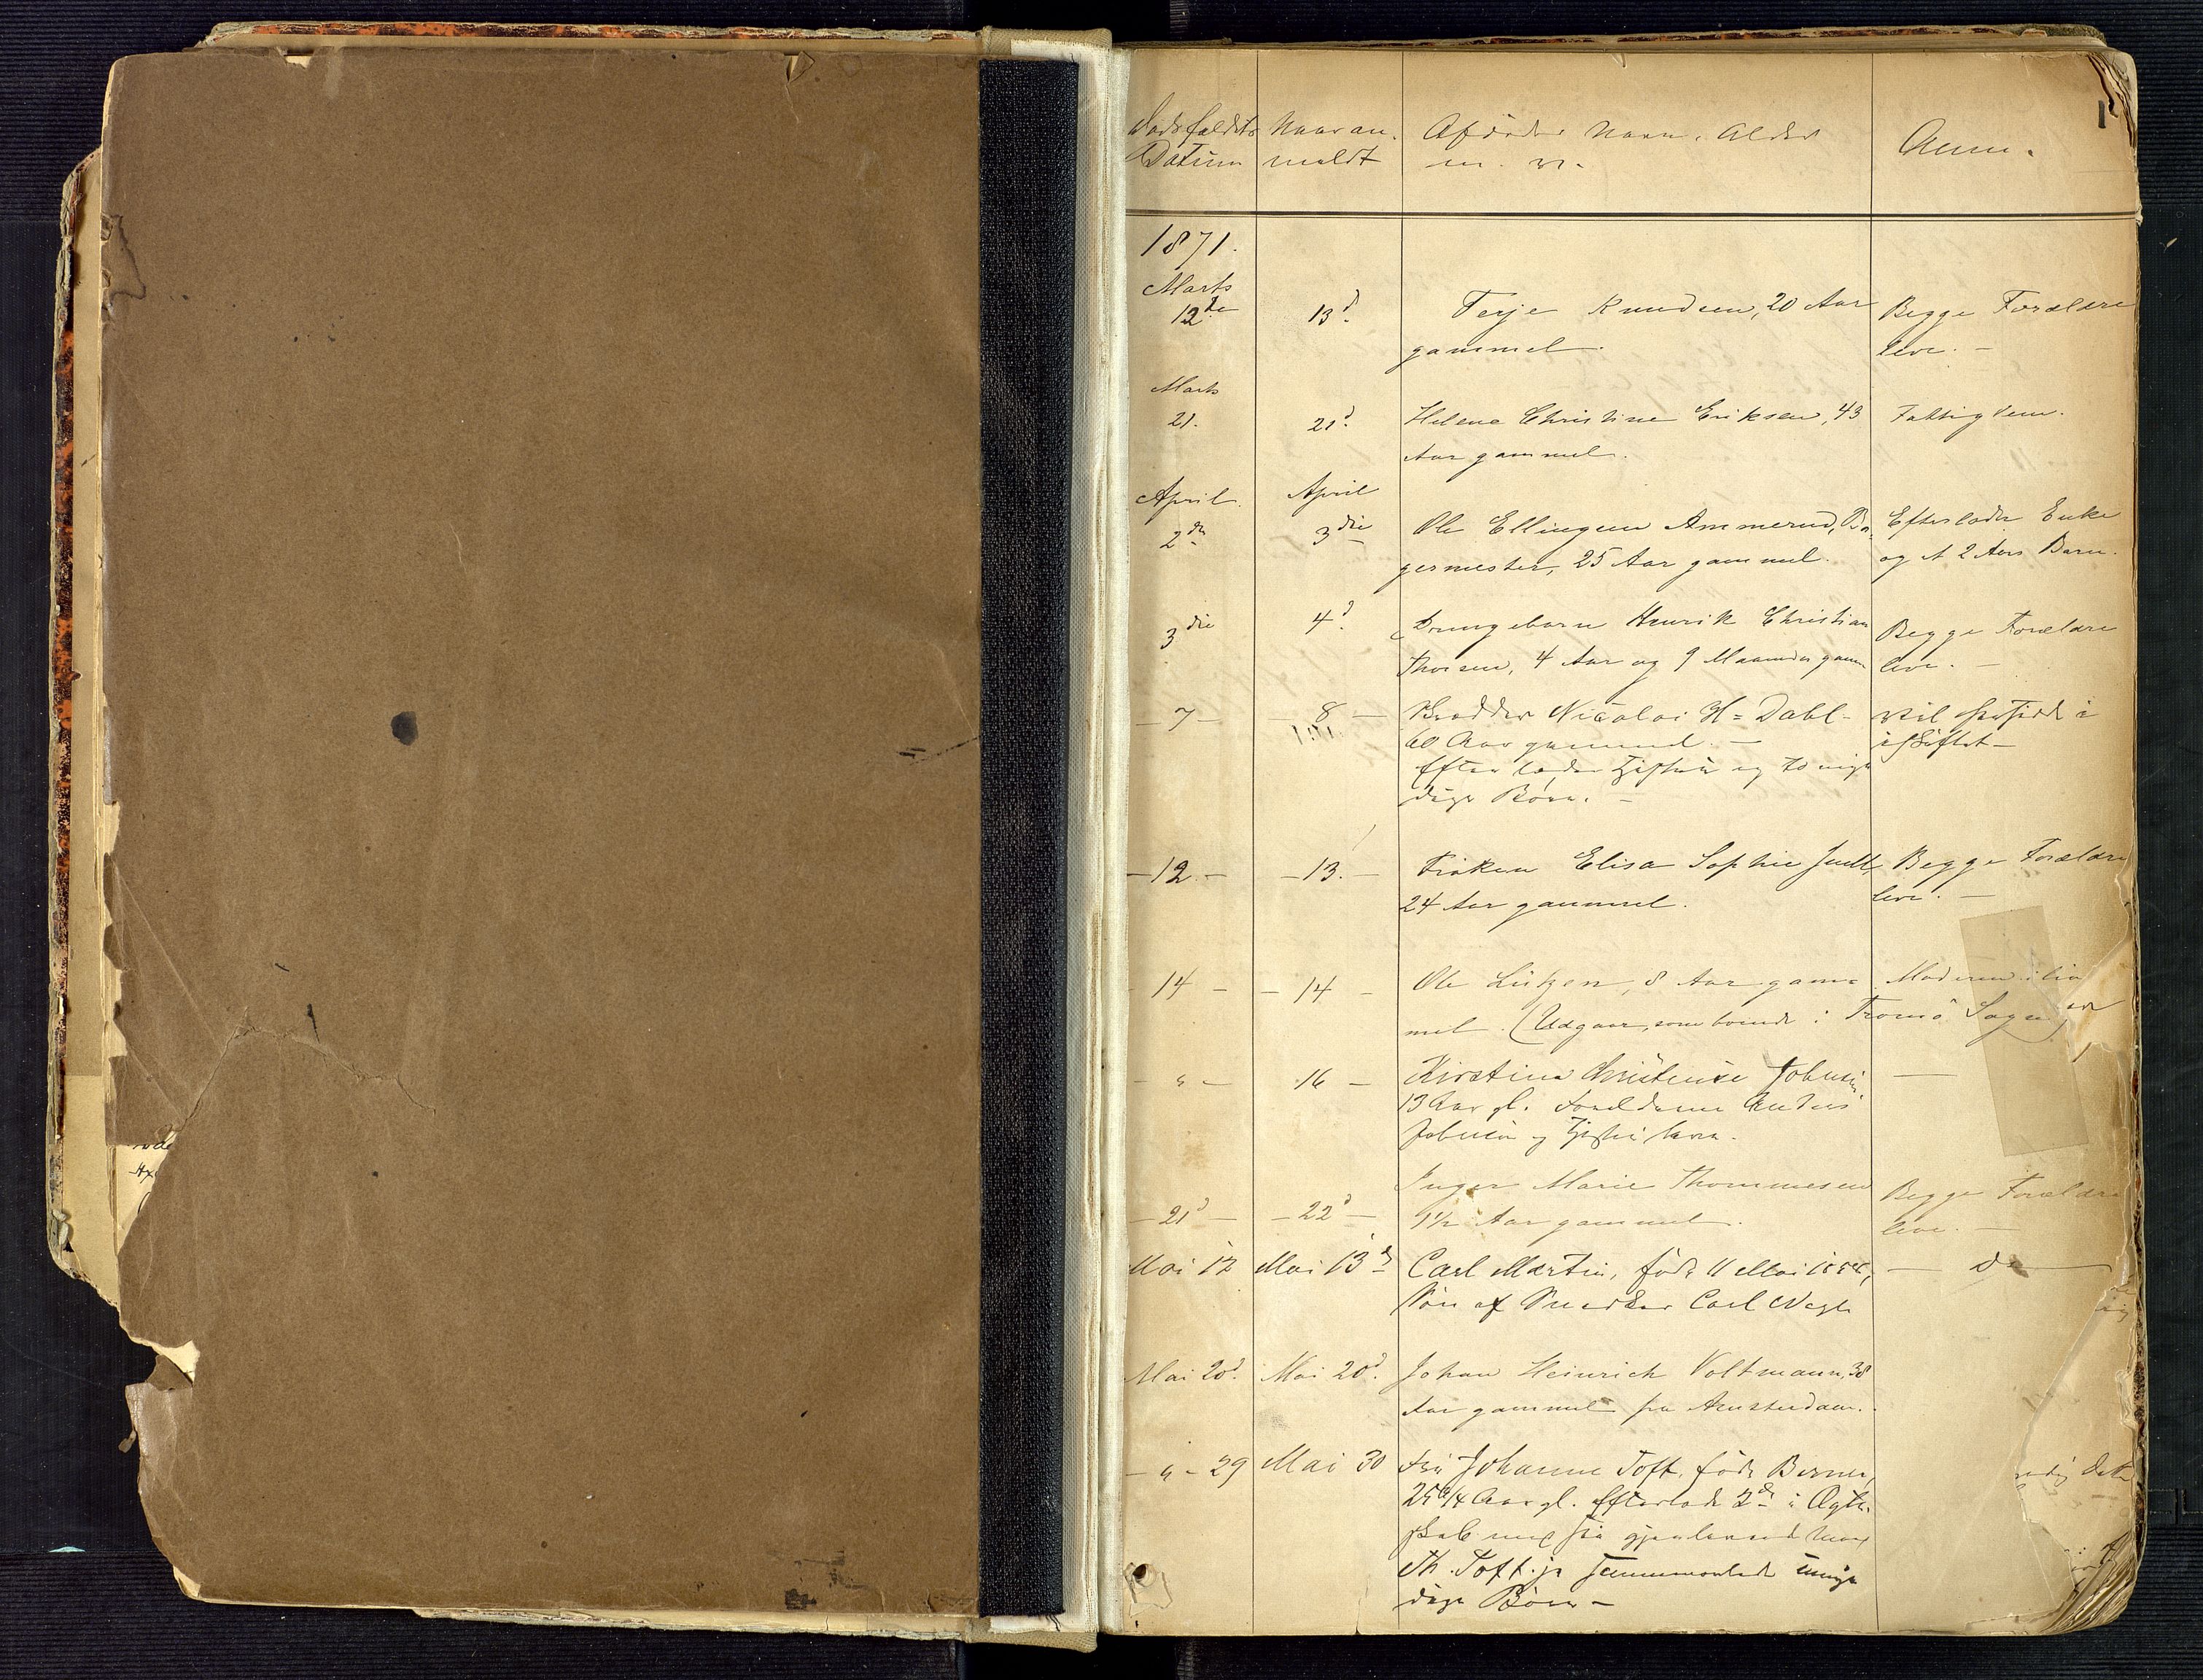 1
Dødsfaldets Naar an- Afdødes Navn, Alder Anm.
Datum meldt m. m.
1871.
Marts
12te 13d. Terje Knudsen, 20 Aar Begge Forældre
gammel. leve. -
Marts
21. 21d. Helene Christine Eriksen, 43 Fattiglem.
Aar gammel.
April April
2den 3die Ole Ellingsen Ammerud, Ba- Efterlader Enke
germester, 25 Aar gammel. og et 2 Aars Barn.
3die 4d. Drengebarn Henrik Christian Begge Forældre
Thorsen, 4 Aar og 9 Maaneder gamm leve. -
- 7 - 8 - Nicolai H= Dahl-
60 Aar gammel. -
Efterlader Hustru og to myn-
dige Børn. -
- 12 - - 13. - Frøken Elisa Sophie Juell Begge Forældre
24 Aar gammel. leve. -
- 14 - - 14 - Ole Lützen, 8 Aar gam= Moderen i live
mel. (Udgaar, som boende i Tromø Sogn)
- " - 16 - Kirstine Christense Johnsen -
13 Aar gl. Forældrene Anders
Johnsen og Hustru leve.
- 21d - - 22d - Inger Marie Thommesen Begge Forældre
1½ Aar gammel. leve. -
Mai 12 Mai 13de Carl Martin, født 11 Mai
Søn af Snedker Carl
Mai 20d. Mai 20d. Johan Heinrich Voltmann, 38
Aar gammel fra Amsterdam.
- " - 29 Mai 30 Fru Johanne Toft, født Berner,
25 3/4 Aar gl. Efterlader 2de i Ægte-
skab med sin gjenlevende Mand
Th. Toft jr sammenavlede umyn-
dige Børn -